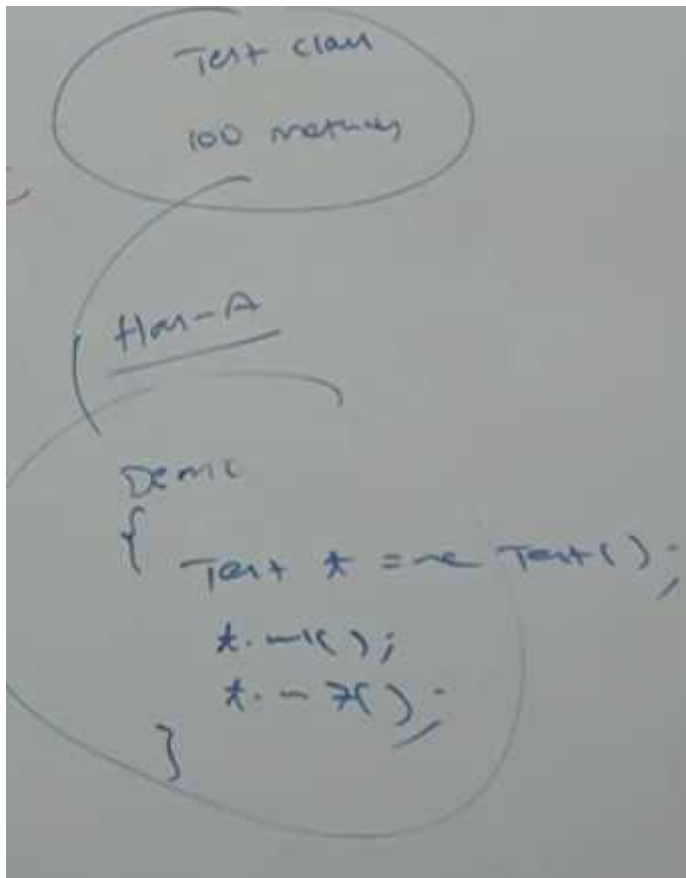 Test class
100 methods
Has-A
Demo
{
Test t = new Test();
t.m1();
t.m7();
}